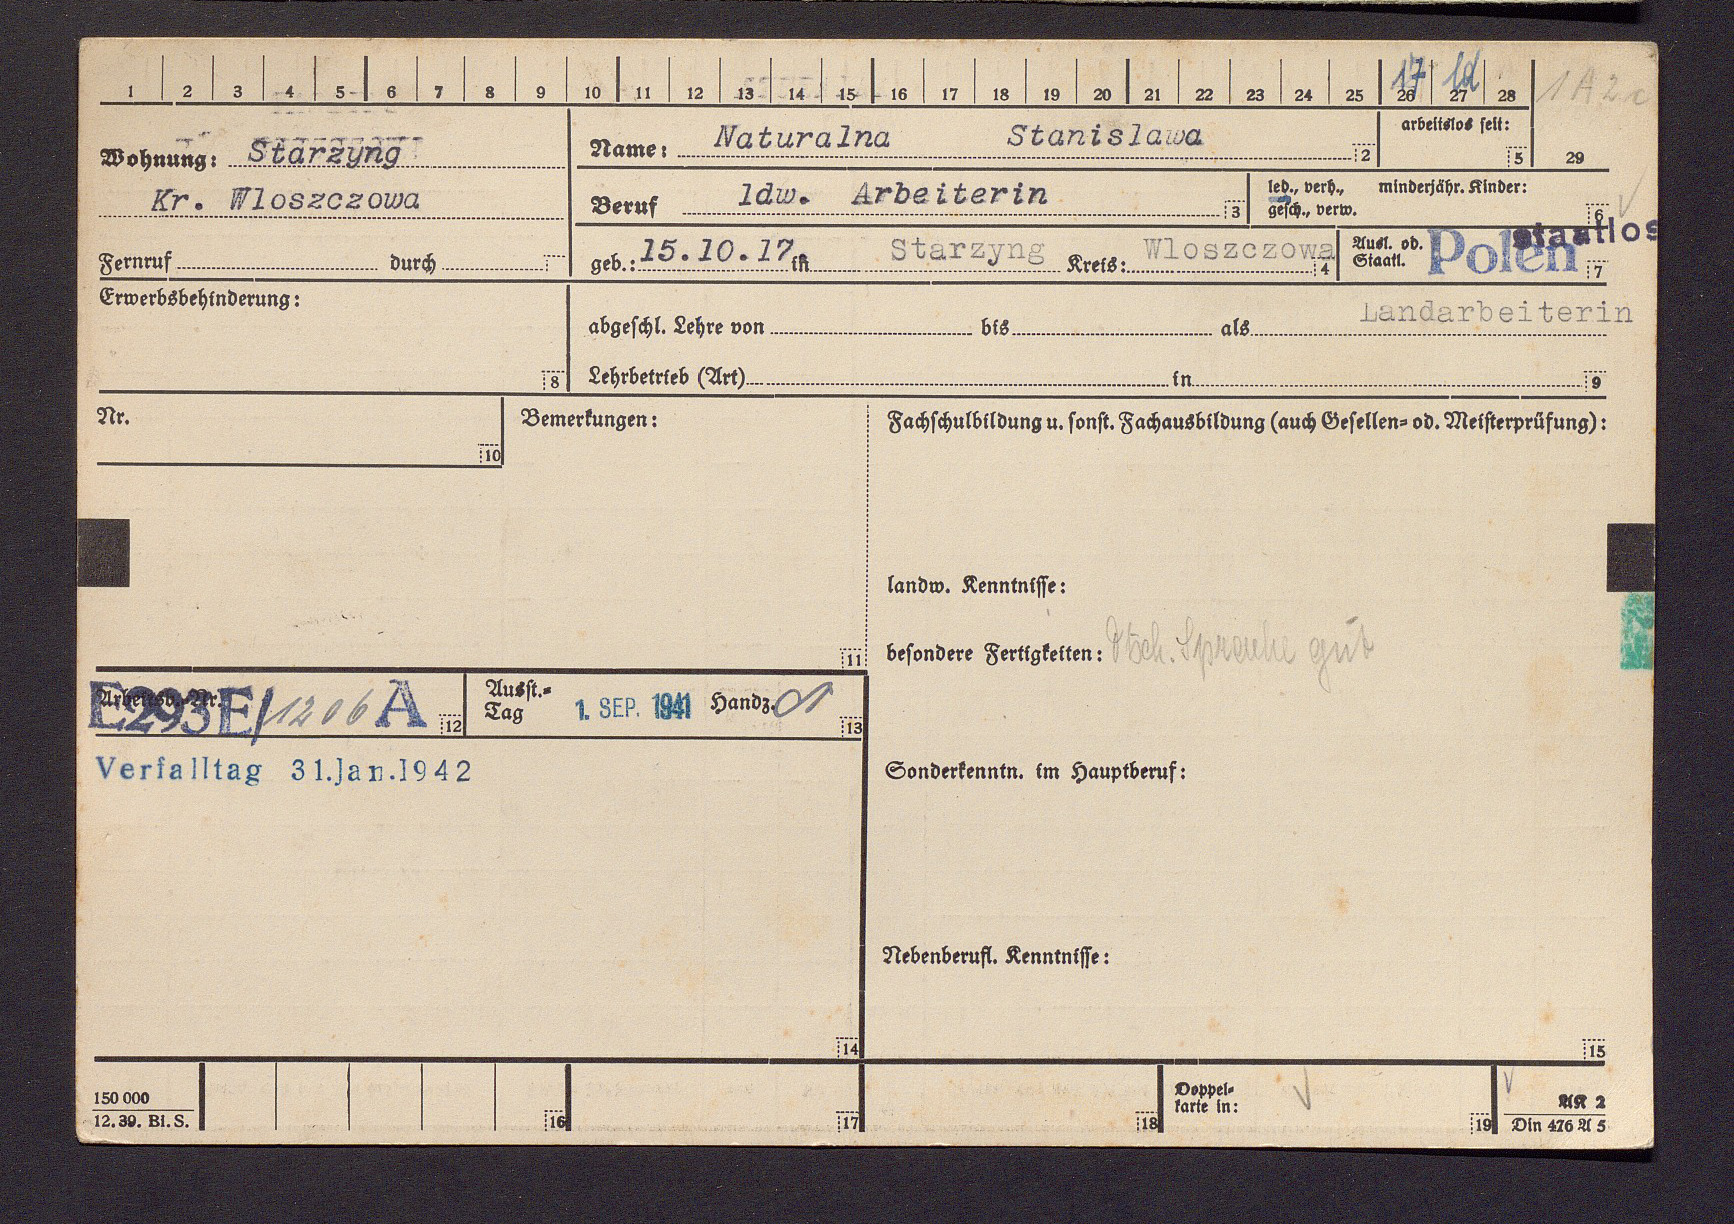 1 2 3 4 5 6 7 8 9 10 11 12 13 14 15 16 17 18 19 20 21 22 23 24 25 26 27 28
17 ld
1A2c
29
Wohnung: Starzyng
Kr. Wloszczowa
Fernruf durch
Name: Naturalna Stanislawa 2
arbeitslos seit: 5
Beruf ldw. Arbeiterin 3
led., verh., minderjähr. Kinder:
gesch., verw. 6
geb.: 15.10.17. in Starzyng Kreis: Wloszczowa 4
Ausl. od. Staatl. Polen staatlos 7
Erwerbsbehinderung: 8
abgeschl. Lehre von bis als Landarbeiterin
Lehrbetrieb (Art) in 9
Nr. 10
Bemerkungen: 11
Fachschulbildung u. sonst. Fachausbildung (auch Gesellen= od. Meisterprüfung):
landw. Kenntnisse:
besondere Fertigkeiten: Dtsch. Sprache gut
Arbeitsb.-Nr. E293E/1206 A 12
Ausst.=
Tag 1. SEP. 1941 Handz. 13
Verfalltag 31.Jan.1942
Sonderkenntn. im Hauptberuf:
Nebenberufl. Kenntnisse:
14 15
150 000
12.39. Bi.S.
16 17 18
Doppel=
karte in: 19
AK 2
Din 476 A 5